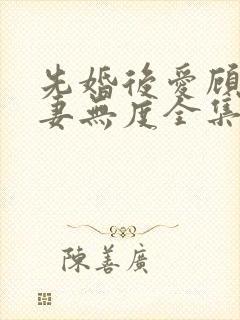 先婚後愛顧
妻無度全集
陳善廣